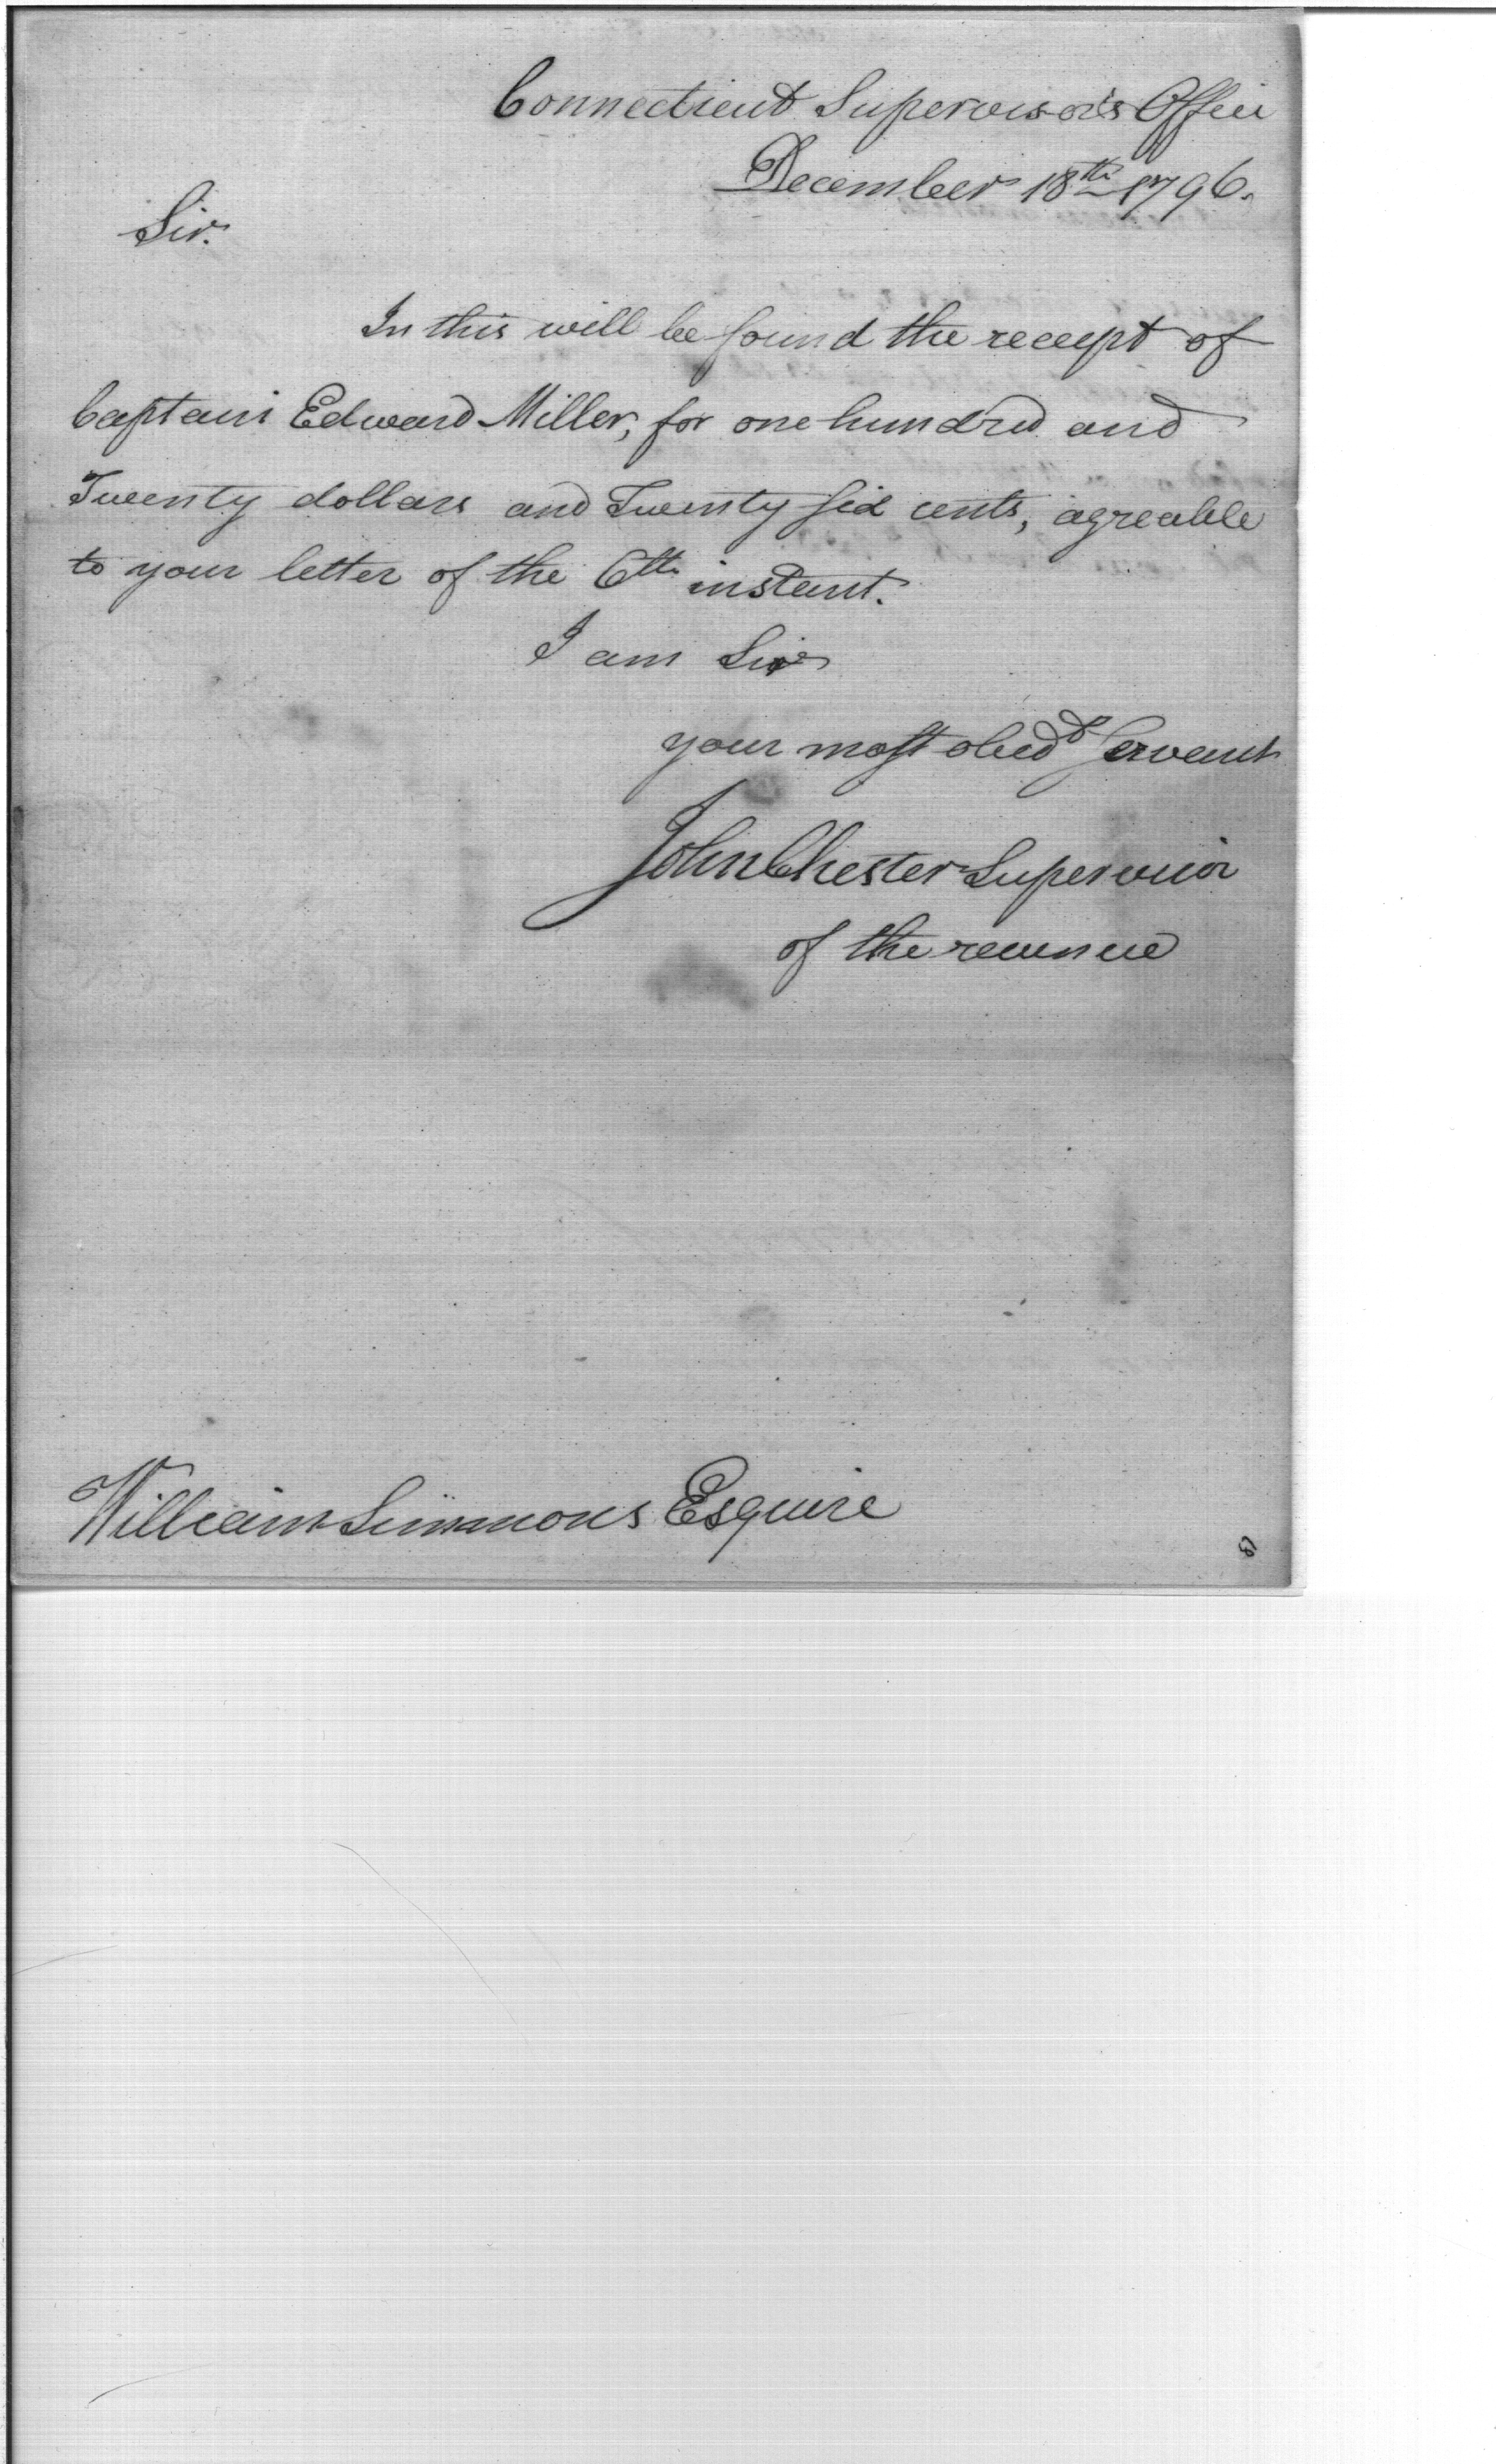 Connecticut Supervisor's Office
December 18th 1796.
Sir.
In this will be found the receept of
Captain Edward Miller, for one hundred and
Twenty dollars and Twenty six cents, agreable
to your letter of the 6th instant.
I am Sir
your most obedt Servant
John Chester Supervisor
of the revenue
William Simmons Esquire